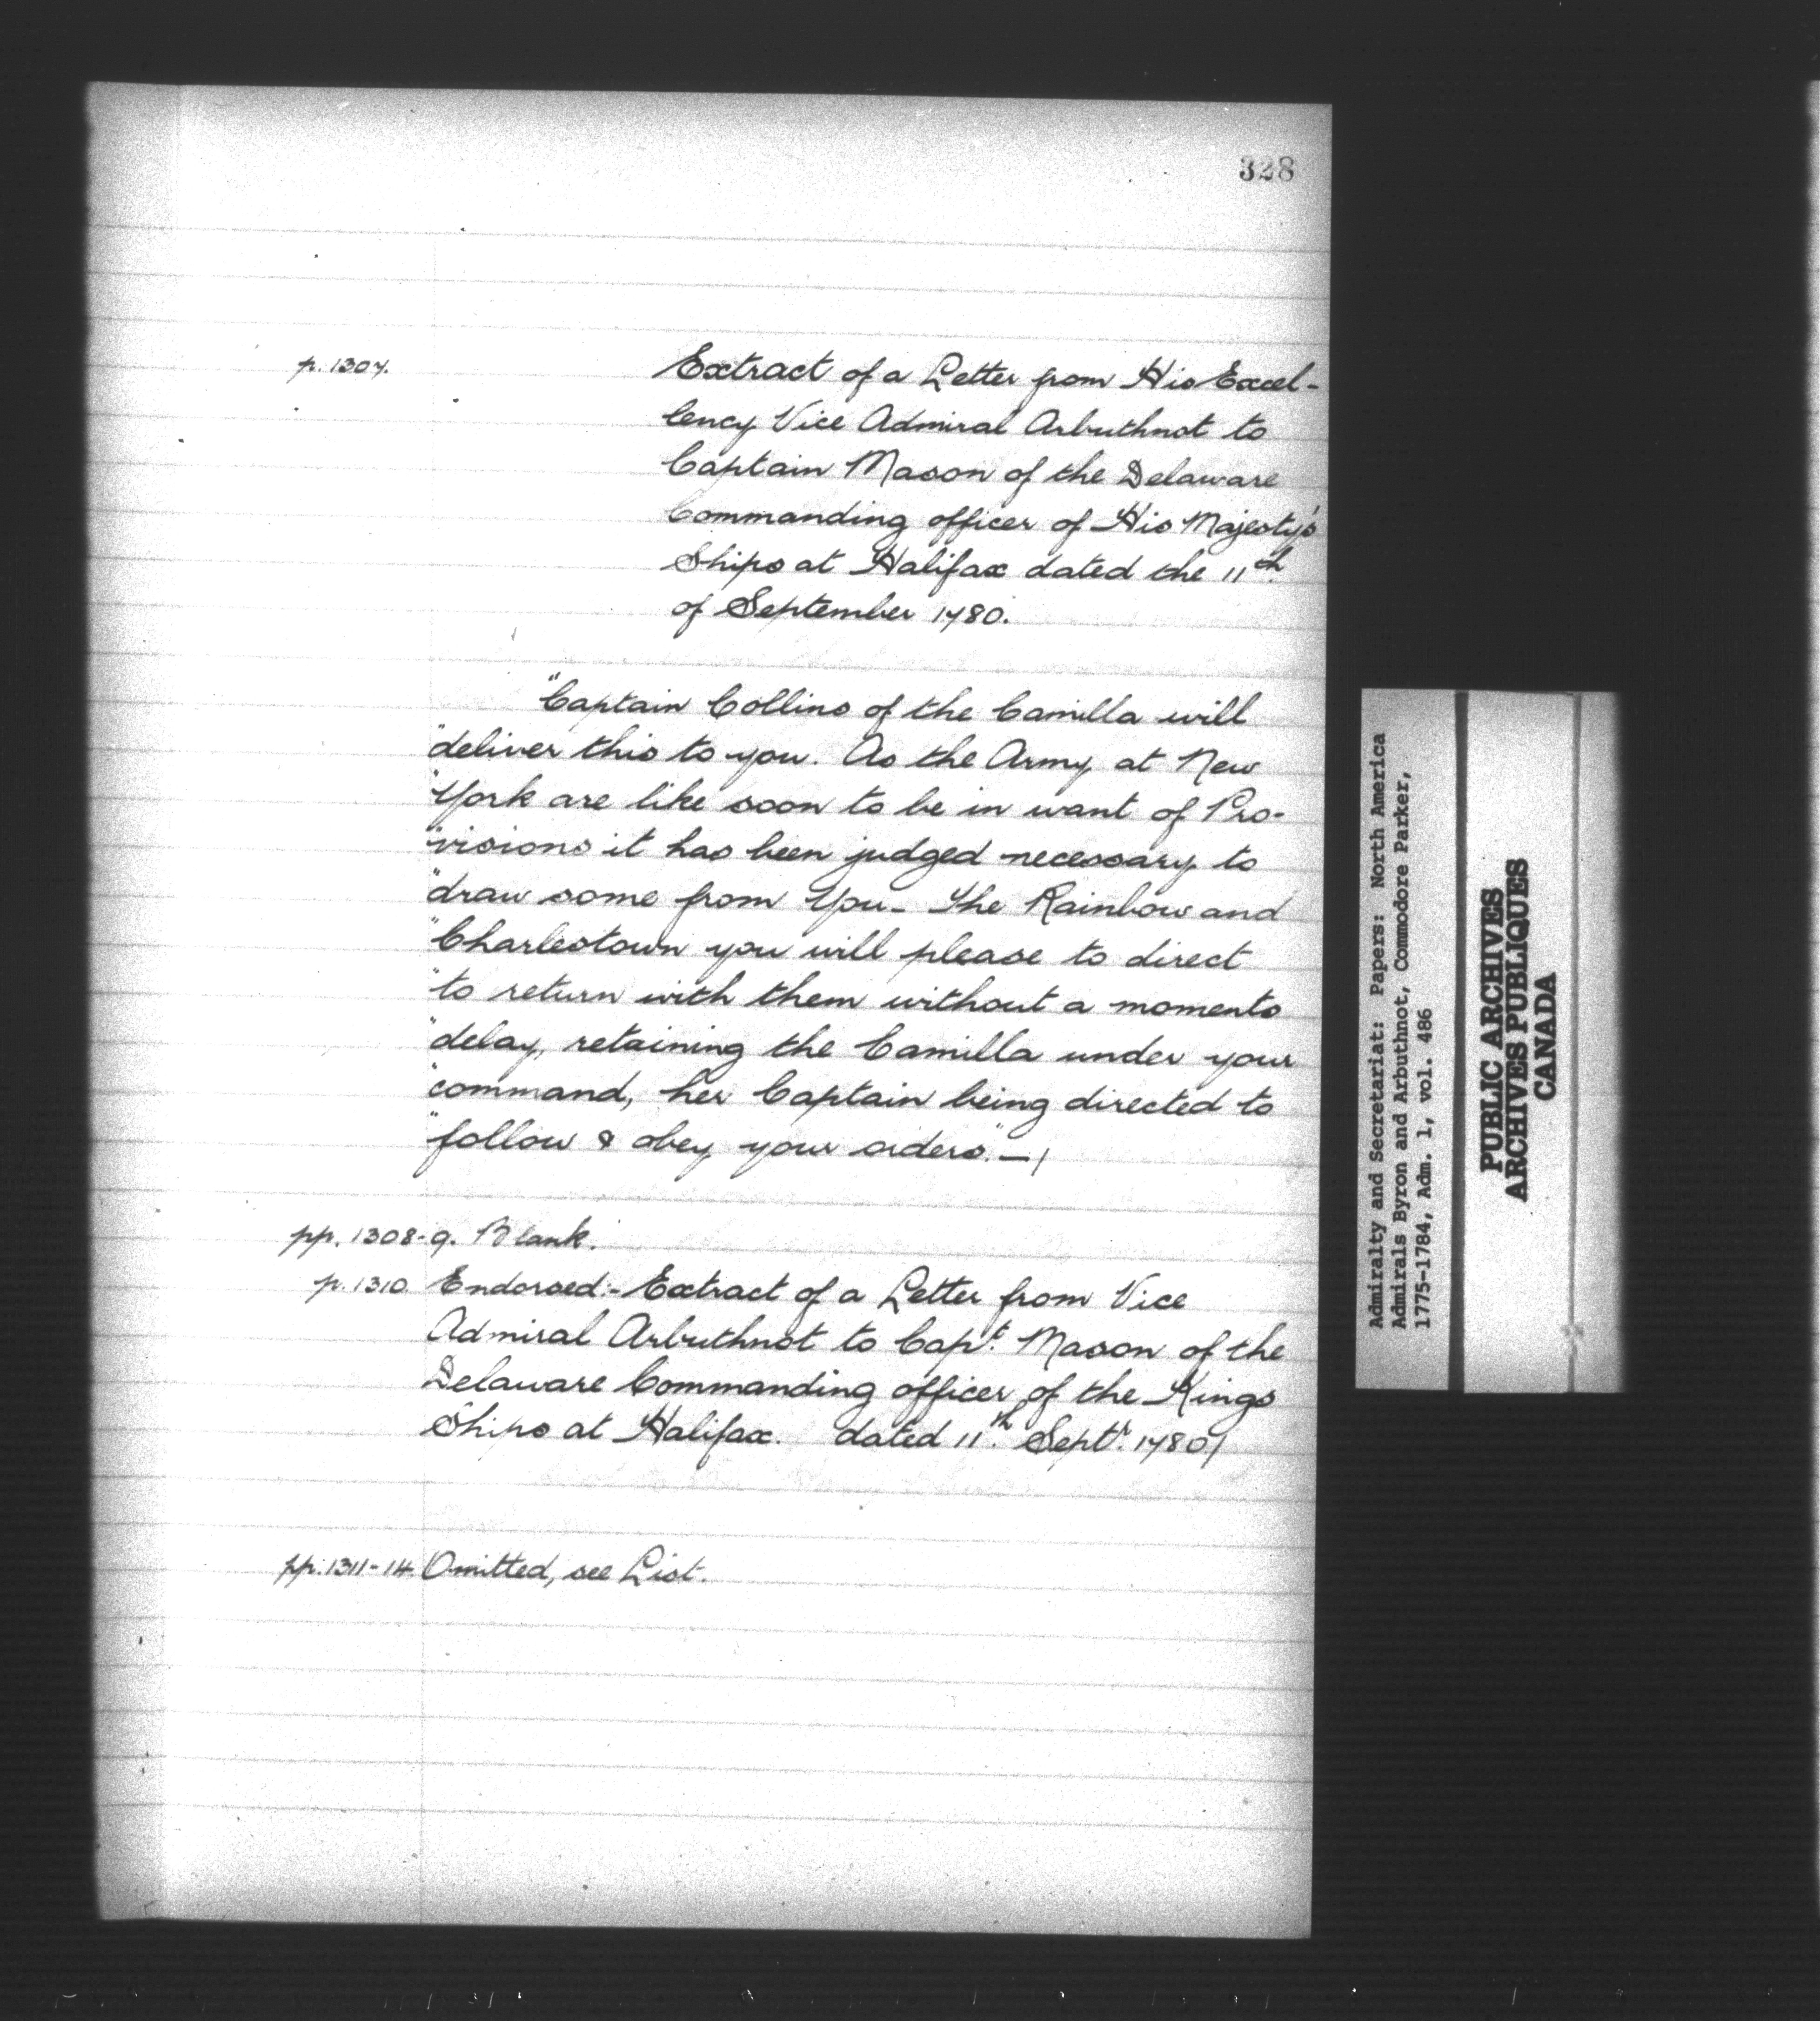 328
p. 1307.
Extract of a Letter from His Excel-
lency Vice Admiral Arbuthnot to
Captain Mason of the Delaware
Commanding officer of His Majesty's
Ships at Halifax dated the 11th
of September 1780.
"Captain Collins of the Camilla will
"deliver this to you. As the Army at New
"York are like soon to be in want of Pro-
"visions it has been judged necessary to
"draw some from You - The Rainbow and
"Charlestown you will please to direct
"to return with them without a moments
"delay, retaining the Camilla under your
"command, her Captain being directed to
"follow & obey your orders." - /
pp. 1308-9. Blank.
p. 1310. Endorsed:- Extract of a Letter from Vice
Admiral Arbuthnot to Capt. Mason of the
Delaware Commanding officer of the Kings
Ships at Halifax. dated 11th. Septr. 1780/
pp. 1311-14 Omitted, see List.
Admiralty and Secretariat: Papers: North America
Admirals Byron and Arbuthnot, Commodore Parker,
1775-1784, Adm. 1, vol. 486
PUBLIC ARCHIVES
ARCHIVES PUBLIQUES
CANADA